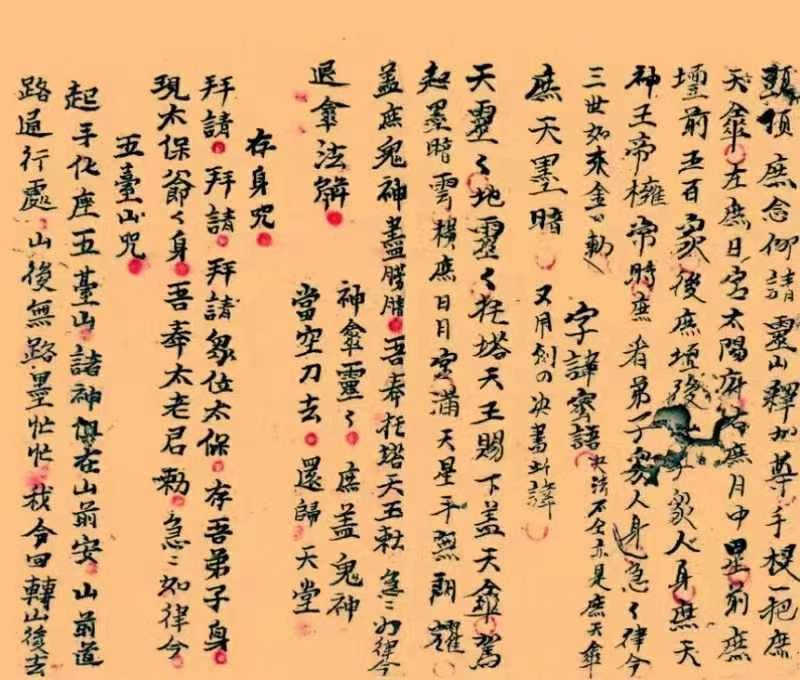 頭頂庶念仰請靈山釋加尊手杈一把庶
天傘左庶日宮太陽府右庶月中星前庶
壇前五百眾後庶壇後 眾人身庶天
神王帝擁帝時庶看弟子眾人身急々律令
三世如來金口勅
字諱蜜語
決法不全亦是庶天傘
庶天墨暗
又用劍の决書此諱
天靈々地靈々托塔天王賜下蓋天傘駕
起墨暗雲横庶日月宮滿天星斗無朗耀
蓋庶鬼神盡朦朧吾奉托塔天王勅急々如律令
退傘法解
神傘靈々庶蓋鬼神
當空刀去還歸天堂
存身咒
拜請拜請拜請眾位太保存吾弟子身
現太保爺々身吾奉太老君勅急々如律令
五臺山咒
起手化座五臺山諸神俱在山前安山前道
路通行處山後無路墨忙忙我今回轉山後去